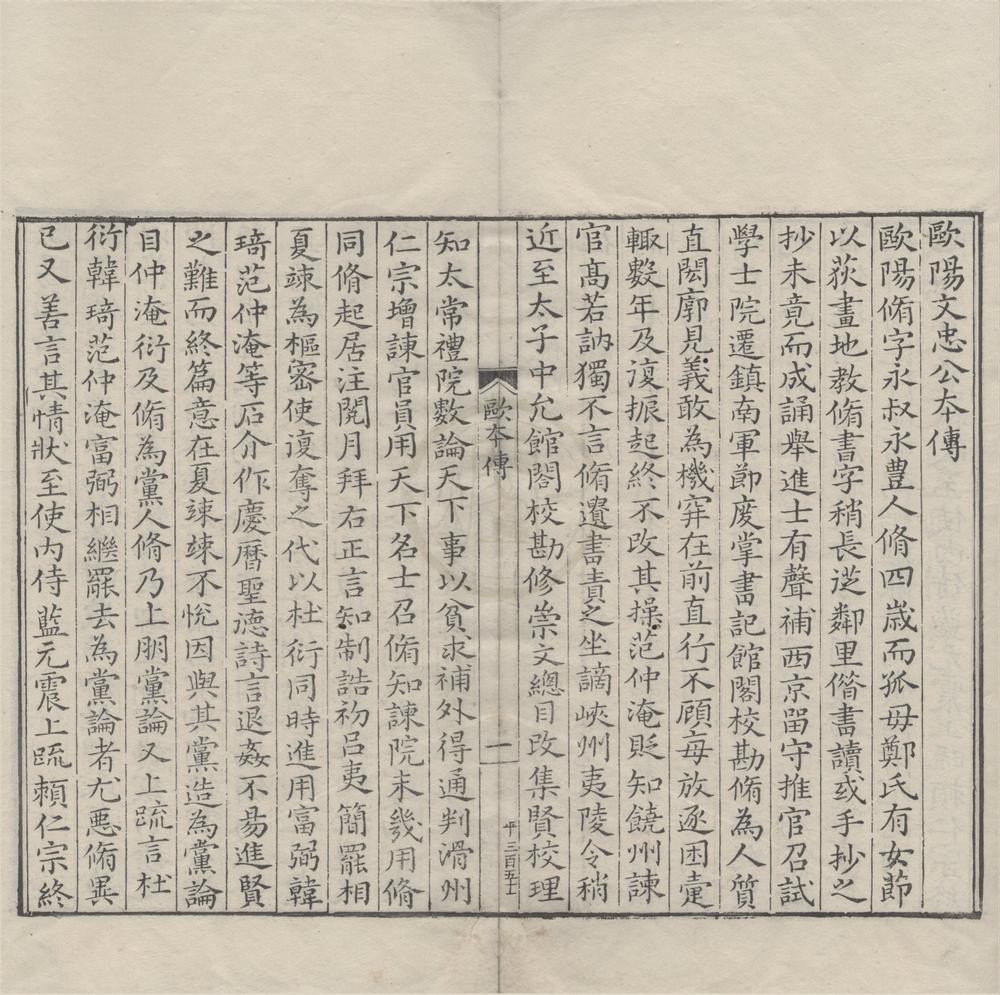 歐陽文忠公本傳
歐陽脩字永叔永豐人脩四歲而孤母鄭氏有女節
以荻畫地教脩書字稍長從鄰里借書讀或手抄之
抄未竟而成誦舉進士有聲補西京留守推官召試
學士院遷鎮南軍節度掌書記館閣校勘脩為人質
直閎廓見義敢為機穽在前直行不顧每放逐困躓
輙數年及復振起終不改其操范仲淹貶知饒州諫
官高若訥獨不言脩遺書責之坐謫峽州夷陵令稍
近至太子中允館閣校勘修崇文總目改集賢校理
歐本傳
一
平三百五十
知太常禮院數論天下事以貧求補外得通判滑州
仁宗增諫官員用天下名士召脩知諫院未幾用脩
同脩起居注閱月拜右正言知制誥初呂夷簡罷相
夏竦為樞密使復奪之代以杜衍同時進用富弼韓
琦范仲淹等石介作慶曆聖德詩言退姦不易進賢
之難而終篇意在夏竦竦不悅因與其黨造為黨論
目仲淹衍及脩為黨人脩乃上朋黨論又上疏言杜
衍韓琦范仲淹富弼相繼罷去為黨論者尤惡脩異
已又善言其情狀至使內侍藍元震上疏賴仁宗終